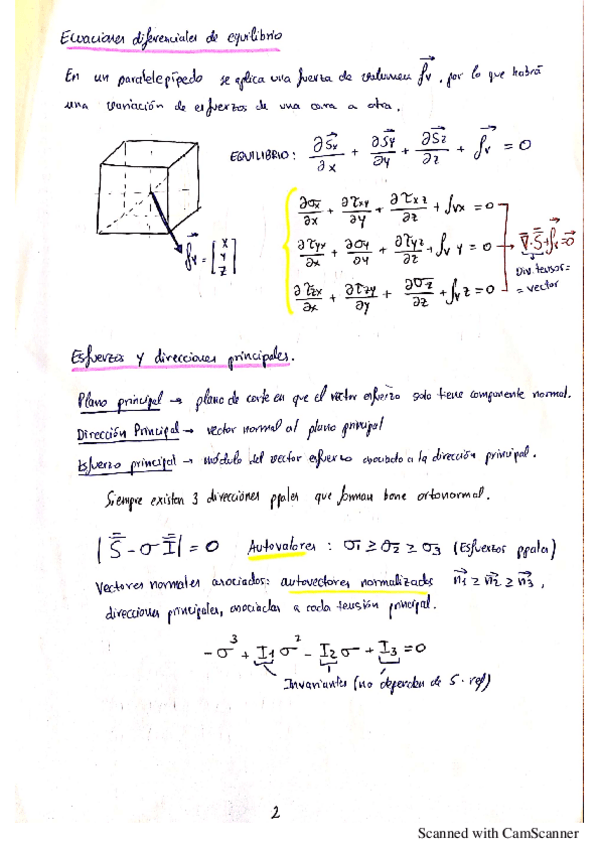 Ecuaciones diferenciales de equilibrio
En un paralelepípedo se aplica una fuerza de volumen f⃗v, por lo que habrá
una variación de esfuerzos de una cara a otra.
EQUILIBRIO: ∂S⃗x/∂x + ∂S⃗y/∂y + ∂S⃗z/∂z + f⃗v = 0
∂σx/∂x + ∂τxy/∂y + ∂τxz/∂z + fvx = 0
∂τyx/∂x + ∂σy/∂y + ∂τyz/∂z + fv y = 0 → ∇⃗·S̿ + f⃗v = 0⃗
∂τzx/∂x + ∂τzy/∂y + ∂σz/∂z + fv z = 0
Div. tensor =
= vector
f⃗v = [X Y Z]
Esfuerzos y direcciones principales.
Plano principal → plano de corte en que el vector esfuerzo solo tiene componente normal.
Dirección Principal → vector normal al plano principal
Esfuerzo principal → módulo del vector esfuerzo asociado a la dirección principal.
Siempre existen 3 direcciones ppales que forman base ortonormal.
|S̿ - σ I̿| = 0 Autovalores : σ1 ≥ σ2 ≥ σ3 (Esfuerzos ppales)
Vectores normales asociados: autovectores normalizados n⃗1 ≥ n⃗2 ≥ n⃗3,
direcciones principales, asociadas a cada tensión principal.
-σ³ + I1 σ² - I2 σ + I3 = 0
Invariantes (no dependen de S. ref)
2
Scanned with CamScanner